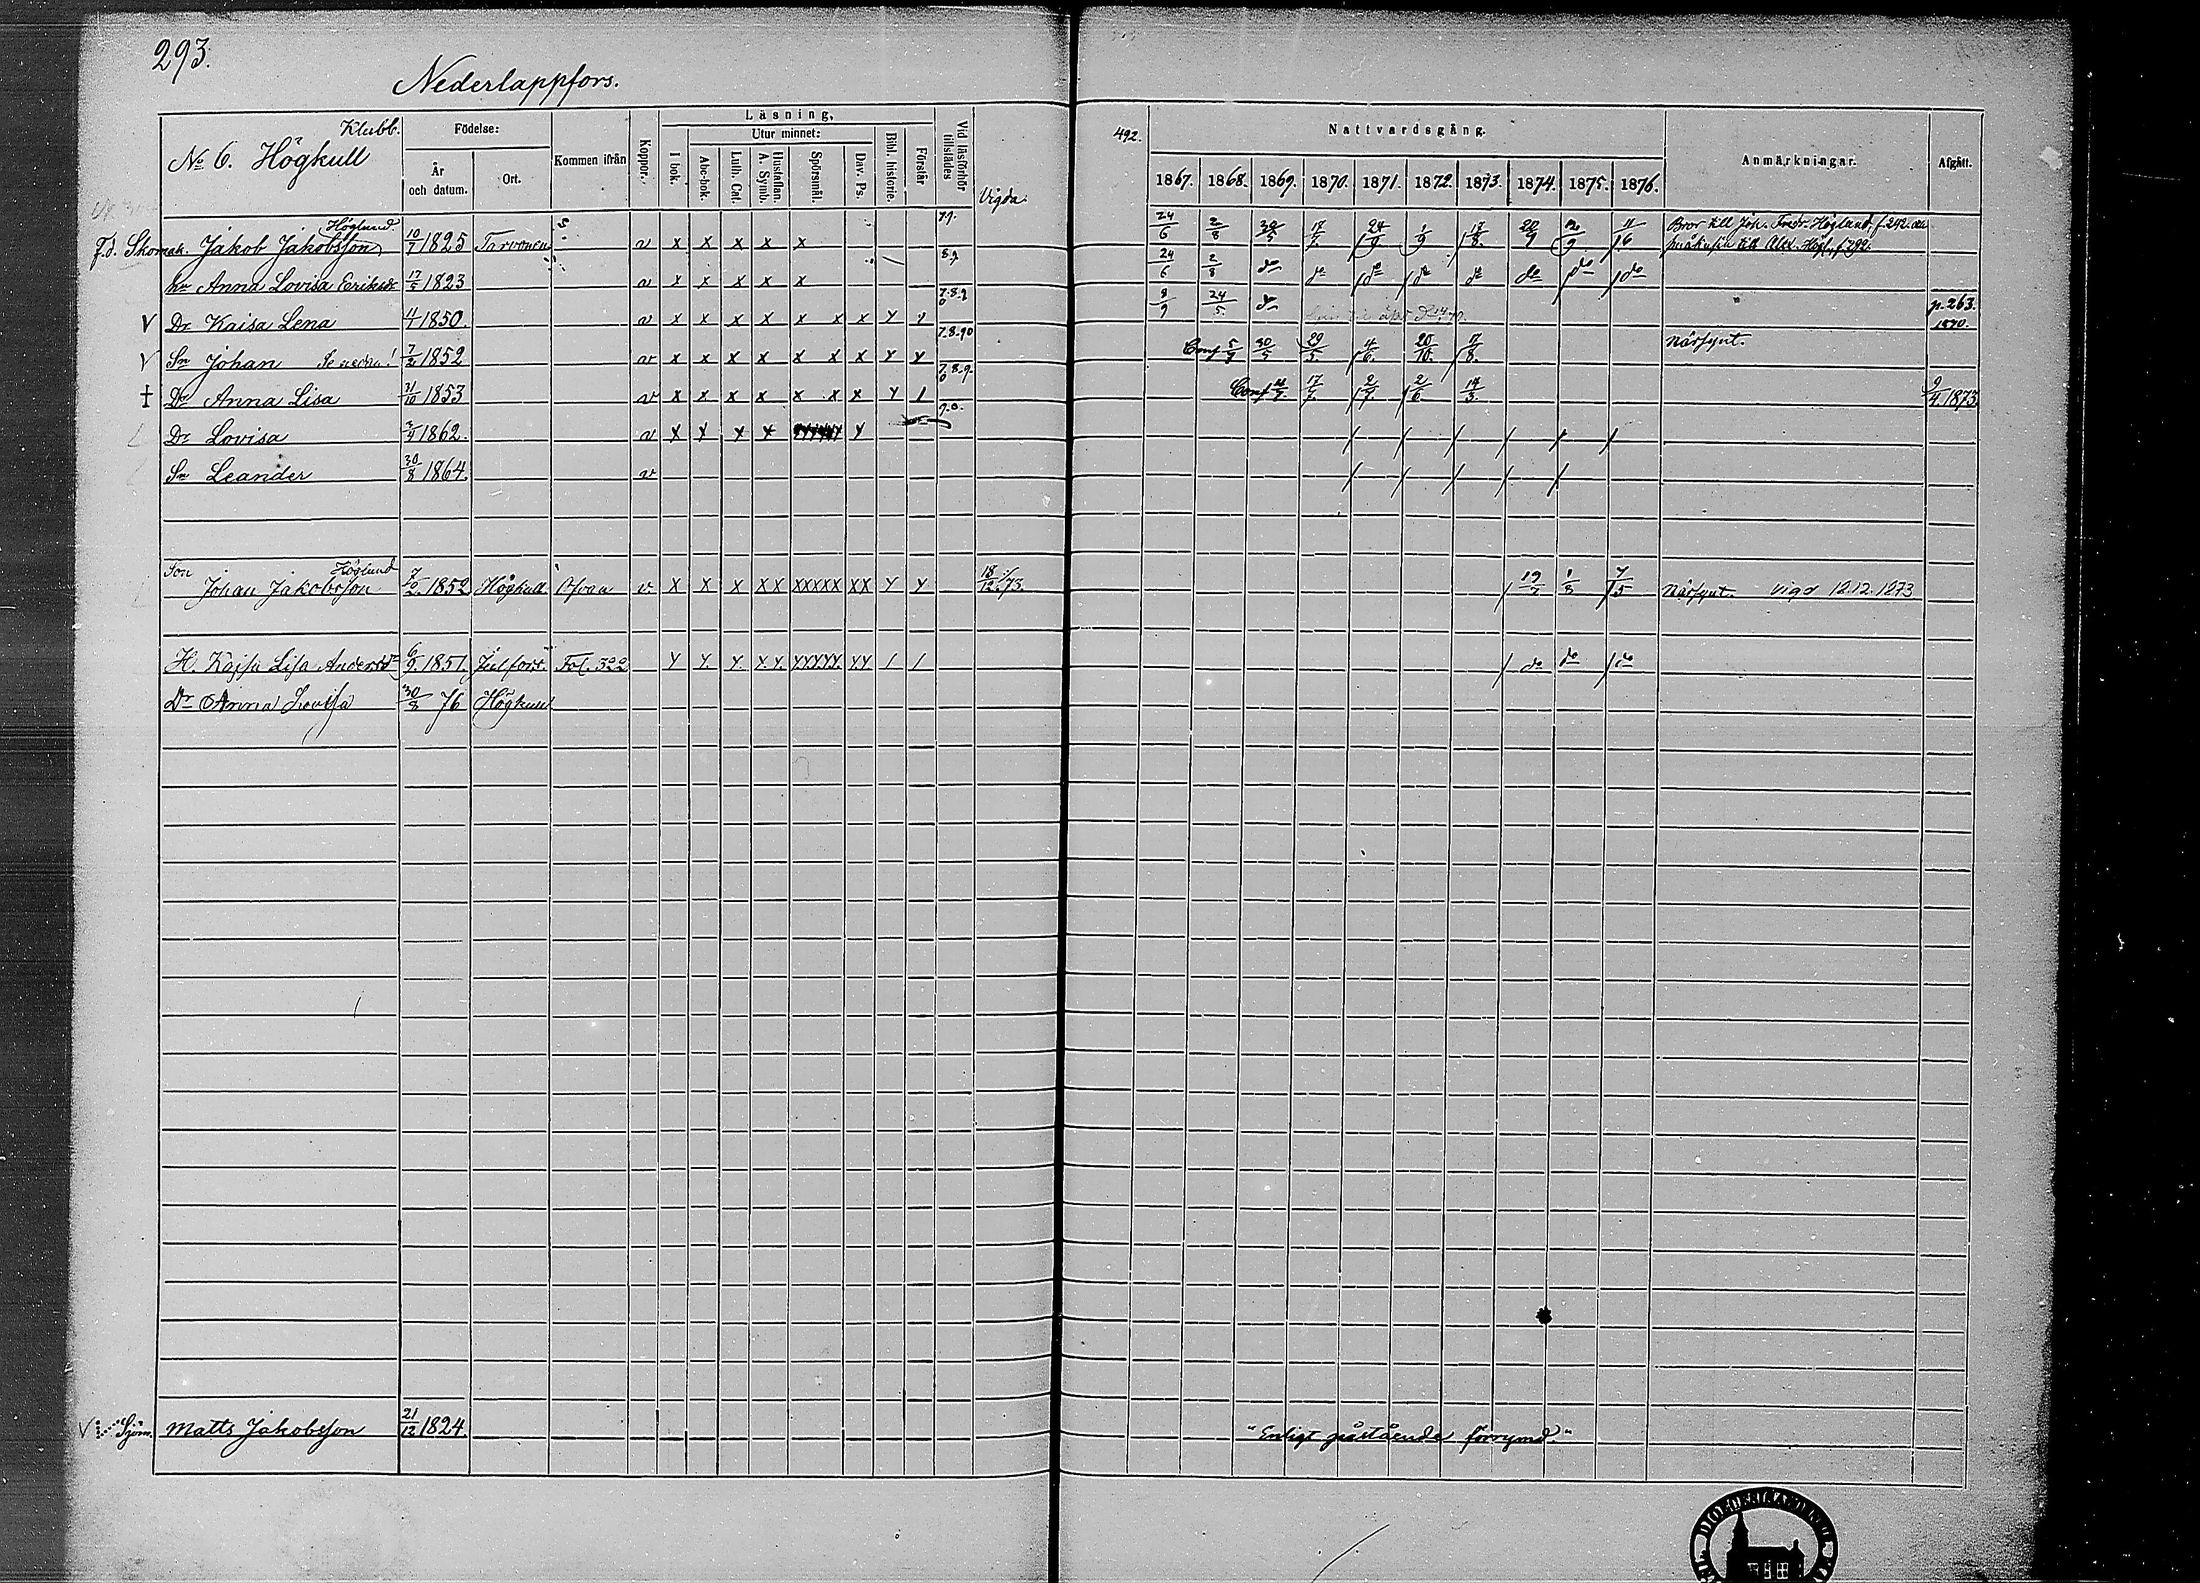 293.
Nederlappfors.
Klubb.
No 6. Högkull
Födelse:
År och datum.
Ort.
Kommen ifrån
Koppor.
Läsning,
I bok.
Utur minnet:
Abc-bok.
Luth. Cat.
Hustaflan. A. Symb.
Spörsmål.
Dav. Ps.
Bibl. historie.
Förstår
Vid läsförhör tillstädes
Vigda
492.
Nattvardsgång.
1867. 1868. 1869. 1870. 1871. 1872. 1873. 1874. 1875. 1876.
Anmärkningar.
Afgått.
Höglund
F.d. Skomak. Jakob Jakobsson 10/7 1825 v x x x x x 7.9. 24/6 2/8 17/7 24/9 1/9 11/6 Bror till Joh. Fredr. Höglund, f. 292.
hu Anna Lovisa Eriksdr 17/5 1823 v x x x x x 8.9 24/6 2/8 do do do do do do do do
V Dr Kaisa Lena 4/1 1850. v x x x x x x x y y 7.8.9 0 8/9 24/5 do p. 263. 1870.
V Sn Johan Se nedan! 7/2 1852 v x x x x x x x y y 7.8.90 Conf 5/7 30/5 29/5 4/6 20/10 17/8 Närsynt.
† Dr Anna Lisa 31/10 1853 v x x x x x x x y / 7.8.9. 0 Conf 17/7 2/7 2/6 14/3 9/4 1873.
Dr Lovisa 3/9 1862. v x x x x y 9.0.
Sn Leander 30/8 1864. v
Son Johan Jakobsson Höglund 7/2 1852 Högkull v. x x x x x xxxxx xx y y 18/12 73. 19/7 1/8 7/5 Närsynt. Vigd 18.12.1873
H. Kajsa Lisa Andersdr 6/9 1851. Jutfors Fol. 322 y y y y.y. yyyyy yy / / do do do
Dr Anna Lovisa 30/8 76 Högkull
Sjöm. Matts Jakobsson 21/12 1824. "Enligt påstående förrymd."